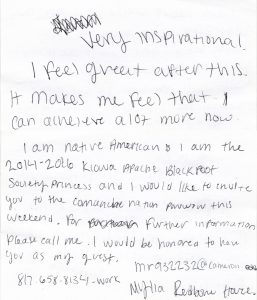 Very inspirational!
I feel great after this.
It makes me feel that I
can acheieve alot more now.
I am native American & I am the
2014-2016 Kiowa Apache Blackfoot
Society Princess and I would like to invite
you to the comanche nation powwow this
weekend. For further information
please call me. I would be honored to have
you as my guest.
mr932232@cameron.edu
817-658-8134-work